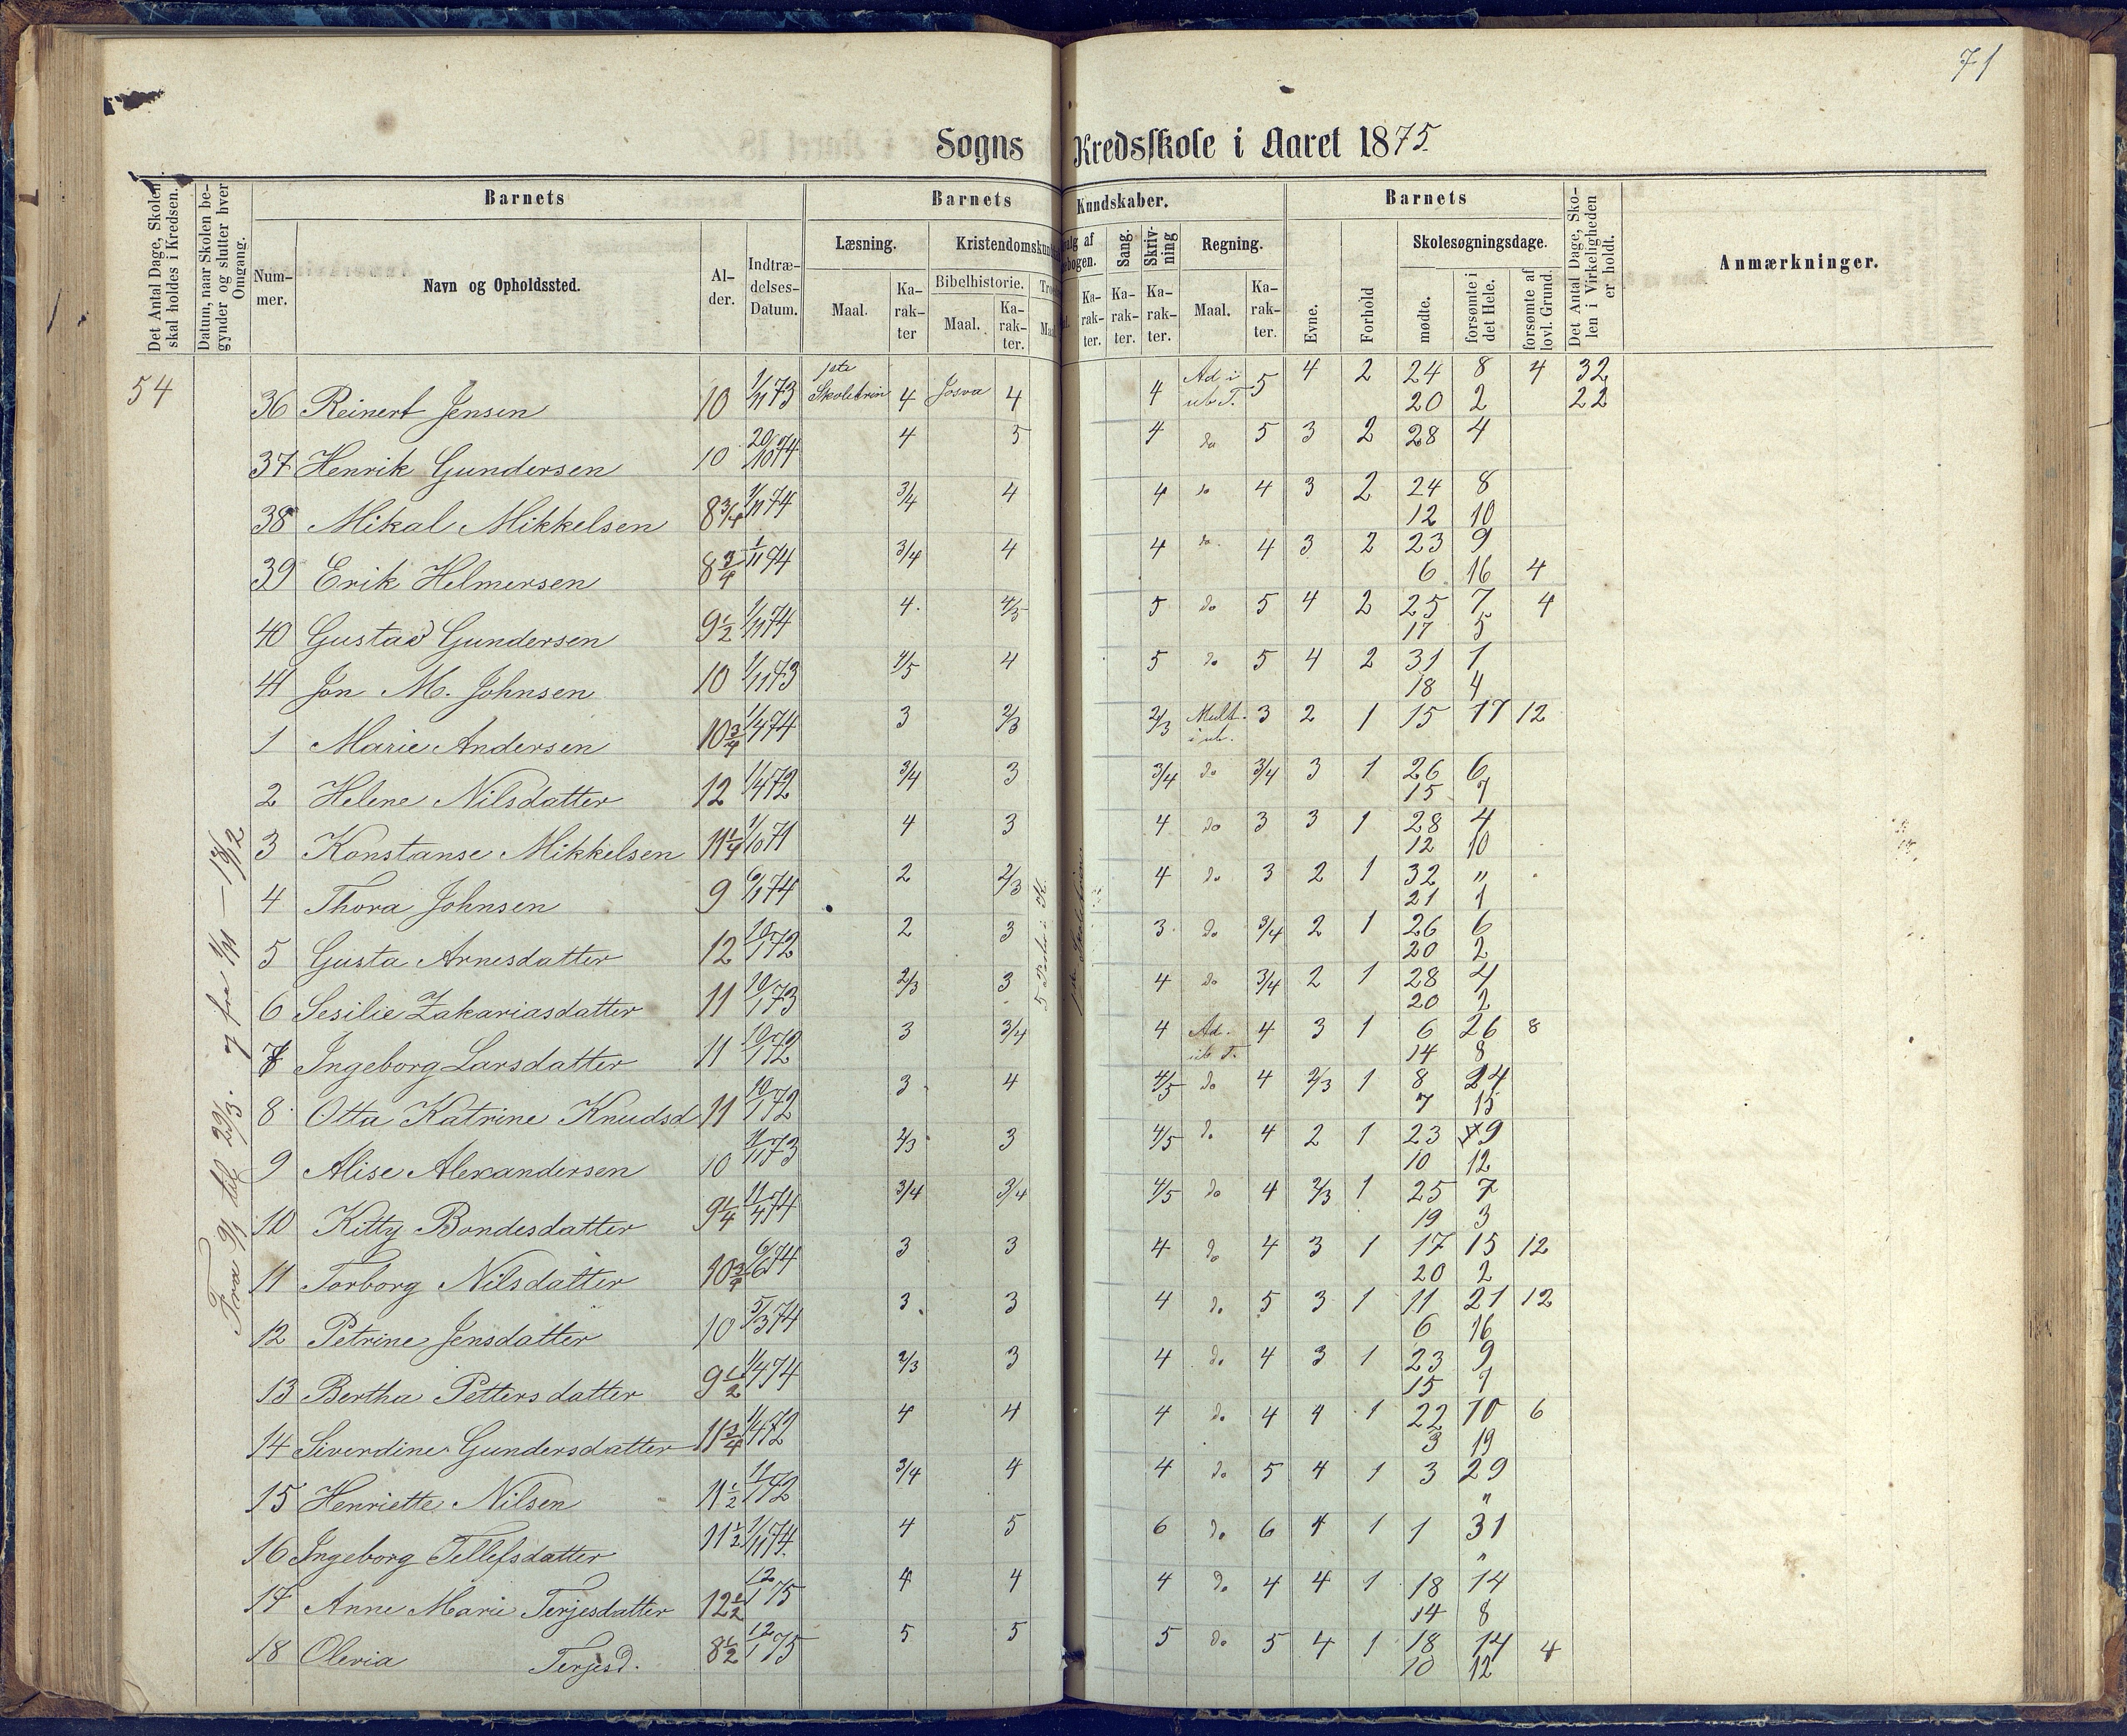 71
Sogns Kredsskole i Aaret 1875.
Det Antal Dage, Skolen skal holdes i Kredsen.
Datum, naar Skolen begynder og slutter hver Omgang.
Barnets
Nummer.
Navn og Opholdssted.
Alder.
Indtrædelses-Datum.
Barnets Kundskaber.
Læsning.
Maal.
Karakter
Bibelhistorie.
Maal.
Karakter.
Sang.
Karakter.
Skrivning
Karakter.
Regning.
Maal.
Karakter.
Barnets
Evne.
Forhold
Skolesøgningsdage.
mødte.
forsømte i det Hele.
forsømte af lovl. Grund.
Det Antal Dage, Skolen i Virkeligheden er holdt.
Anmærkninger.
54
Fra 9/1 til 29/3.
36 Reinert Jensen 10 1/11 73 1ste Skoletrin 4 Josva 4 4 Ad. i ub T. 5 4 2 24 8 4 32
20 2 22
37 Henrik Gundersen 10 20/10 74 4 5 4 do 5 3 2 28 4
38 Mikal Mikkelsen 8 3/4 1/11 74 3/4 4 4 do 4 3 2 24 8
12 10
39 Erik Helmersen 8 3/4 1/11 74 3/4 4 4 do 4 3 2 23 9
6 16 4
40 Gustav Gundersen 9 1/2 1/11 74 4 4/5 5 do 5 4 2 25 7 4
17 5
41 Jon M. Johnsen 10 1/11 73 4/5 4 5 do 5 4 2 31 1
18 4
1 Marie Andersen 10 3/4 1/4 74 3 2/3 2/3 Mult. i ub. 3 2 1 15 17 12
2 Helene Nilsdatter 12 1/4 72 3/4 3 3/4 do 3/4 3 1 26 6
15 7
3 Konstanse Mikkelsen 11 1/4 1/10 71 4 3 4 do 3 3 1 28 4
12 10
4 Thora Johnsen 9 6/1 74 2 2/3 4 do 3 2 1 32 "
21 1
5 Gusta Arnesdatter 12 10/1 72 2 3 3 do 3/4 2 1 26 6
20 2
6 Sesilie Zakariasdatter 11 10/1 73 2/3 3 4 do 3/4 2 1 28 4
20 2
7 Ingeborg Larsdatter 11 10/1 72 3 3/4 4 Ad. ub T. 4 3 1 6 26 8
14 8
8 Otta Katrine Knudsd 11 10/1 72 3 4 4/5 do 4 2/3 1 8 24
7 15
9 Alise Alexandersen 10 1/11 73 2/3 3 4/5 do 4 2 1 23 9
10 12
10 Kitty Bondesdatter 9 1/4 11/4 74 3/4 3/4 4/5 do 4 2/3 1 25 7
19 3
11 Torborg Nilsdatter 10 3/4 6/6 74 3 3 4 do 4 3 1 17 15 12
20 2
12 Petrine Jensdatter 10 5/3 74 3 3 4 do 5 3 1 11 21 12
6 16
13 Bertha Pettersdatter 9 1/2 1/4 74 2/3 3 4 do 4 3 1 23 9
15 7
14 Siverdine Gundersdatter 11 3/4 1/4 72 4 4 4 do 4 4 1 22 10 6
3 19
15 Henriette Nilsen 11 1/2 11/1 72 3/4 4 4 do 5 4 1 3 29
"
16 Ingeborg Tellefsdatter 11 1/2 1/11 74 4 5 6 do 6 4 1 1 31
"
17 Anne Marie Terjesdatter 12 1/2 12/1 75 4 4 4 do 4 4 1 18 14
14 8
18 Olevia Terjesd. 8 1/2 12/1 75 5 5 5 do 5 4 1 18 14 4
10 12